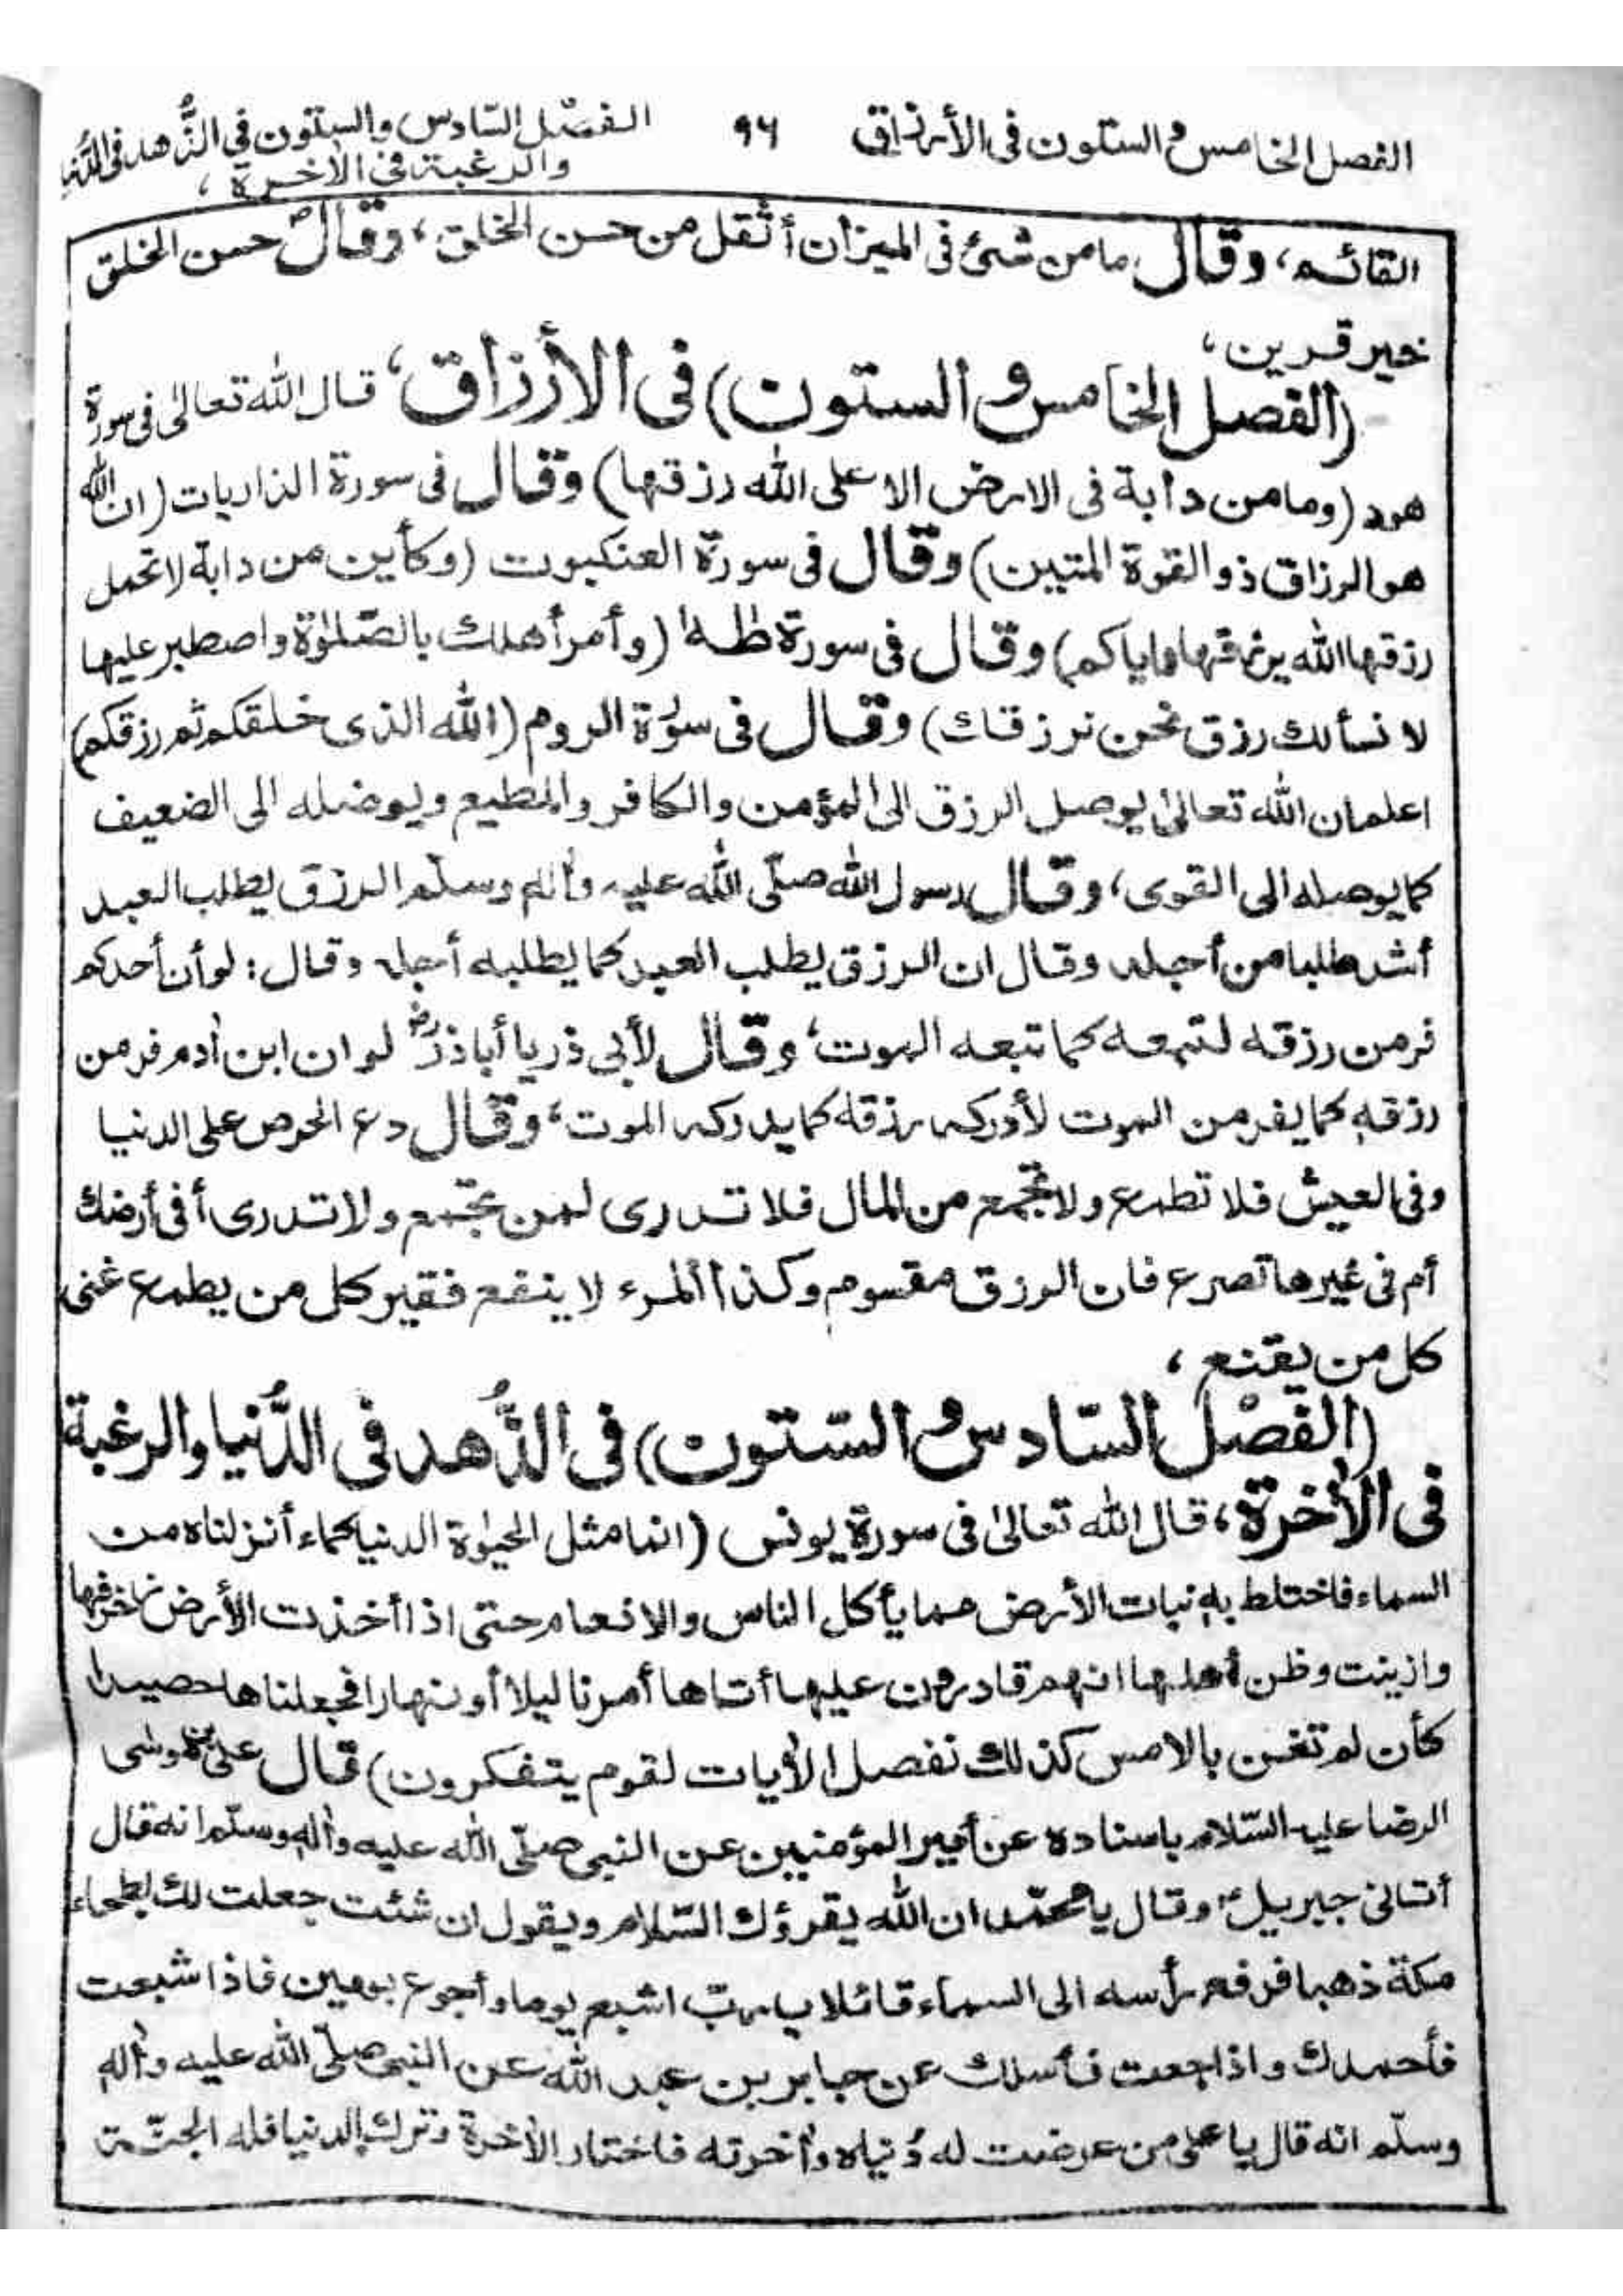 الفصل الخامس و الستون فى الأرزاق ٩٦ الفصل السّادس والستون فى الزُّهد فى الدُّنيا
والرغبة فى الاٰخرة،
القائم، وقال مامن شئ فى الميزان أثقل من حسن الخلق، وقالؐ حسن الخلق
خير قرين،
(الفصل الخامس و الستون) فى الأرزاق، قال الله تعالىٰ فى سورة
هود (ومامن دابة فى الارض الا على الله رزقها) وقال فى سورة الذاريات (ان الله
هوالرزاق ذوالقوة المتين) وقال فى سورة العنكبوت (وكأين من دابة لاتحمل
رزقهاالله يرزقهاواياكم) وقال فى سورة طٰهٰ (وأمرأهلك بالصّلوٰة واصطبر عليها
لا نسألك رزق نحن نرزقك) وقال فى سورة الروم (الله الذى خلقكم ثم رزقكم)
اعلم ان الله تعالىٰ يوصل الرزق الى المؤمن والكافر والمطيع ويوصله الى الضعيف
كمايوصله الى القوى، وقال رسول الله صلّى الله عليه واٰله وسلّم الرزق يطلب العبد
أشد طلبا من أجله وقال ان الرزق يطلب العبد كما يطلبه أجله وقال: لوأن أحدكم
فر من رزقه لتبعه كما تبعه الموت، وقال لأبى ذر يا أباذرؓ لو ان ابن اٰدم فر من
رزقه كما يفر من الموت لأدركه رزقه كما يدركه الموت، وقال دع الحرص على الدنيا
وفى العيش فلا تطمع ولا تجمع من المال فلا تدرى لمن تجمع ولا تدرى أفى أرضك
أم فى غيرها تصرع فان الرزق مقسوم وكذا المرء لا ينفع فقير كل من يطمع غنى
كل من يقنع،
(الفصْل السّادس و السّتون) فى الزُّهد فى الدُّنيا والرغبة
فى الاٰخرة، قال الله تعالىٰ فى سورة يونس (انما مثل الحيوٰة الدنيا كماء أنزلناه من
السماء فاختلط به نبات الأرض مما يأكل الناس والانعام حتى اذا أخذت الأرض زخرفها
وازينت وظن أهلها انهم قادرون عليها أتاها أمرنا ليلا أو نهارا فجعلناها حصيدا
كأن لم تغن بالامس كذلك نفصل الاٰيات لقوم يتفكرون) قال على بن موسى
الرضا عليه السّلام باسناده عن أمير المؤمنين عن النبى صلّى الله عليه واٰله وسلّم انه قال
أتانى جبريلؑ وقال يا محمّد ان الله يقرؤك السّلام ويقول ان شئت جعلت لك بطحاء
مكة ذهبا فرفع رأسه الى السماء قائلا يا ربّ اشبع يوما وأجوع يومين فاذا شبعت
فأحمدك واذا جعت فأسلك عن جابر بن عبد الله عن النبى صلّى الله عليه واٰله
وسلّم انه قال يا على من عرضت له دُنياه واٰخرته فاختار الاٰخرة وترك الدنيا فله الجنّة